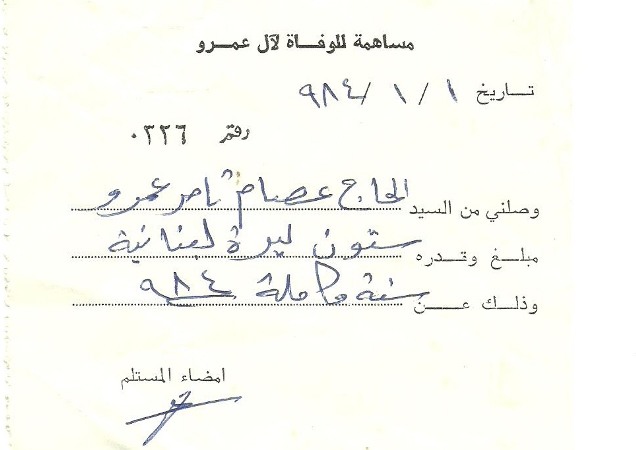 مساهمة للوفاة لآل عمرو
تاريخ ١ / ١ / ٩٨٤
رقم ٠٢٢٦
وصلني من السيد الحاج عصام ناصر عمرو
مبلغ وقدره ستون ليرة لبنانية
وذلك عن سنة كاملة ٩٨٤
امضاء المستلم